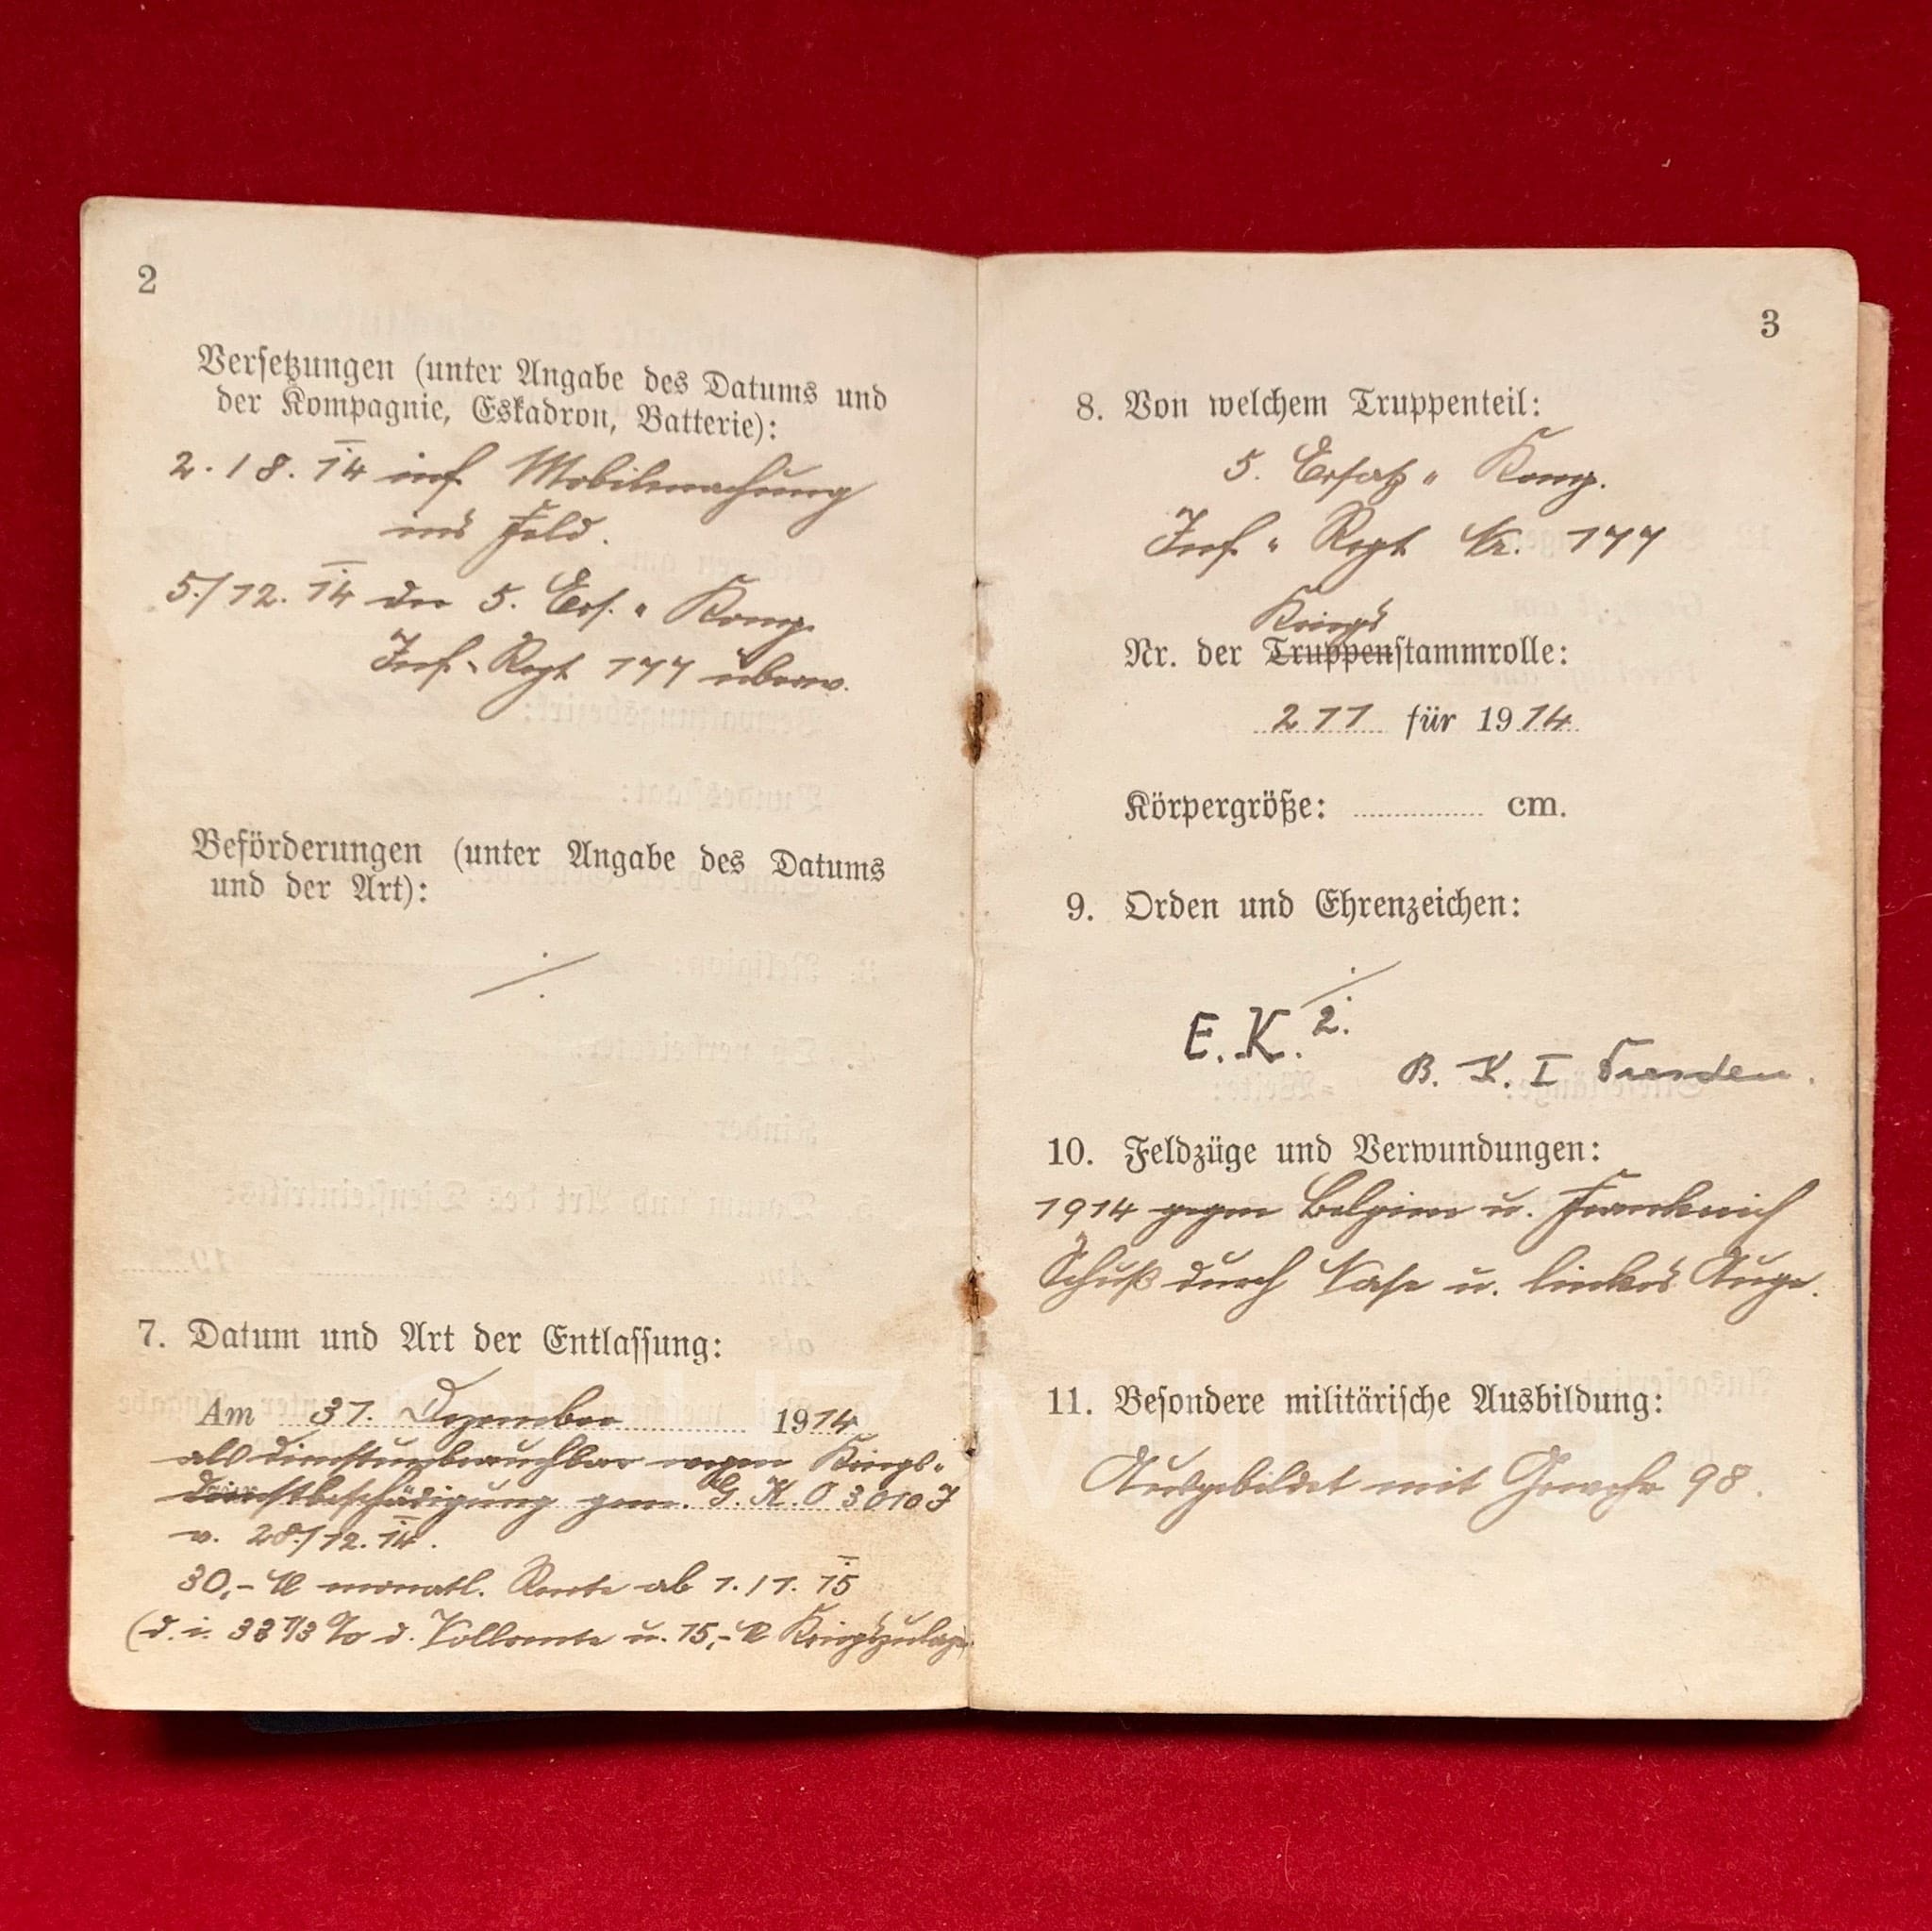 2
Versetzungen (unter Angabe des Datums und
der Kompagnie, Eskadron, Batterie):
2./8. 14 inf. Mobilmachung
ins Feld.
5./12. 14 der 5. Ers.-Komp.
Inf.-Regt 177 überw.
Beförderungen (unter Angabe des Datums
und der Art):
./.
7. Datum und Art der Entlassung:
Am 31. Dezember 1914
als dienstunbrauchbar wegen Kriegs-
dienstbeschädigung gem. G. K. O 3010 I
v. 28./12. 14.
30,- M monatl. Rente ab 1./1. 15
(d. i. 33 1/3 % d. Vollrente u. 15,- M Kriegszulage)
3
8. Von welchem Truppenteil:
5. Ersatz-Komp.
Inf.-Regt Nr. 177
Kriegs
Nr. der Truppenstammrolle:
211 für 1914
Körpergröße: cm.
9. Orden und Ehrenzeichen:
./.
E.K. 2.
B. K. I Dresden.
10. Feldzüge und Verwundungen:
1914 gegen Belgien u. Frankreich
Schuß durch Nase u. linkes Auge.
11. Besondere militärische Ausbildung:
Ausgebildet mit Gewehr 98.